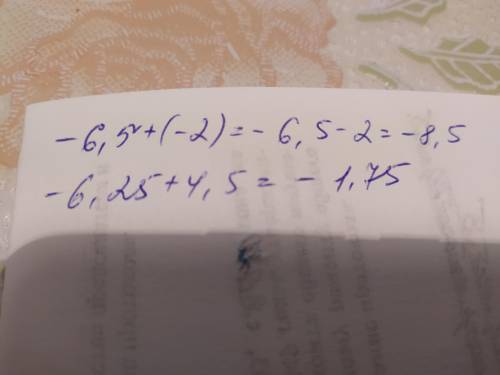 -6,5+(-2)=-6,5-2=-8,5
-6,25+4,5=-1,75